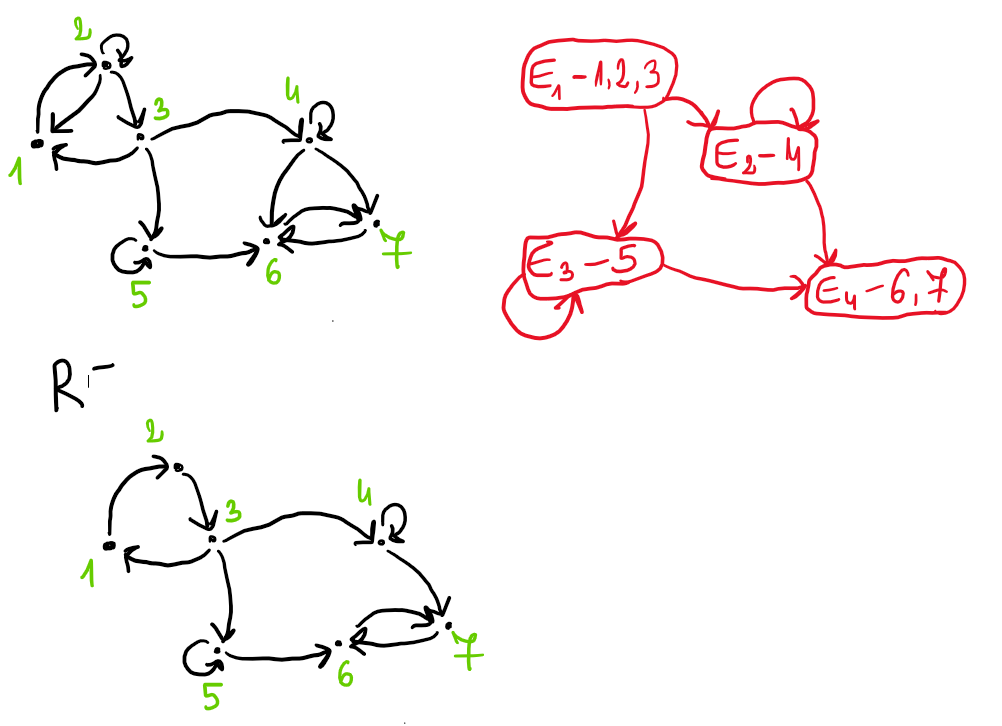 2
3
4
1
5
6
7
E₁ – 1, 2, 3
E₂ – 4
E₃ – 5
E₄ – 6, 7
R⁻
2
3
4
1
5
6
7